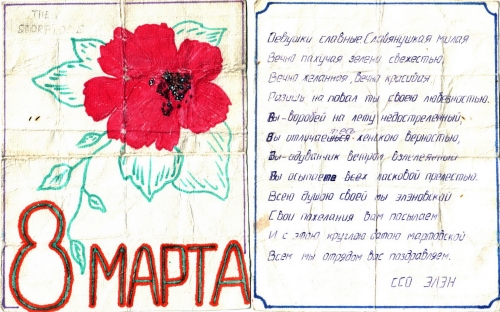 THE
8 МАРТА
Девушки славные, Славянушка милая
Вечно пахучая зелени свежестью,
Вечно желанная, Вечно красивая
Разишь на повал ты своею любезностью.
Вы-воробей на лету недострелянный
Вы отличаетесь женскою верностью,
Вы-одуванчик ветром взлелеянный
Вы осыпаете всех ласковой прелестью.
Всею душою своей мы элэновской
Свои пожелания Вам посылаем
И с этою круглою датою мартовской
Всем мы отрядом вас поздравляем.
ССО ЭЛЭН